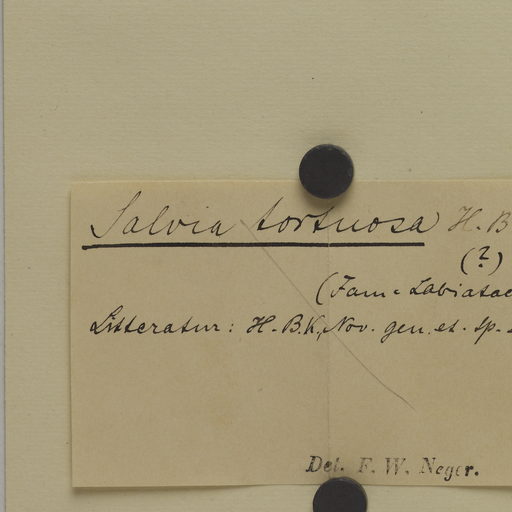 Salvia tortuosa H. B
(?)
(Fam. Labiatae
Litteratur: H. B. K., Nov. gen. et. sp.
Det. F. W. Neger.